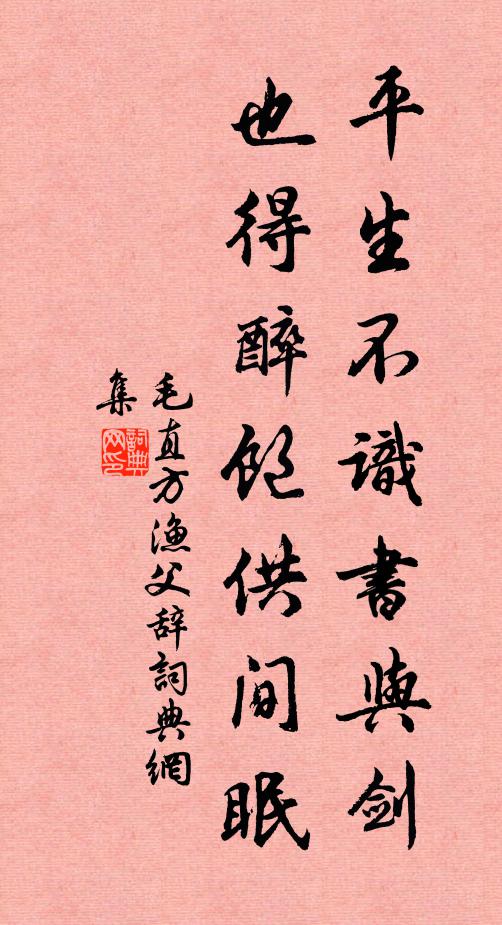 平生不識書與劍
也得醉飽供间眠
毛直方漁父辞詞典網
集
詞典网印